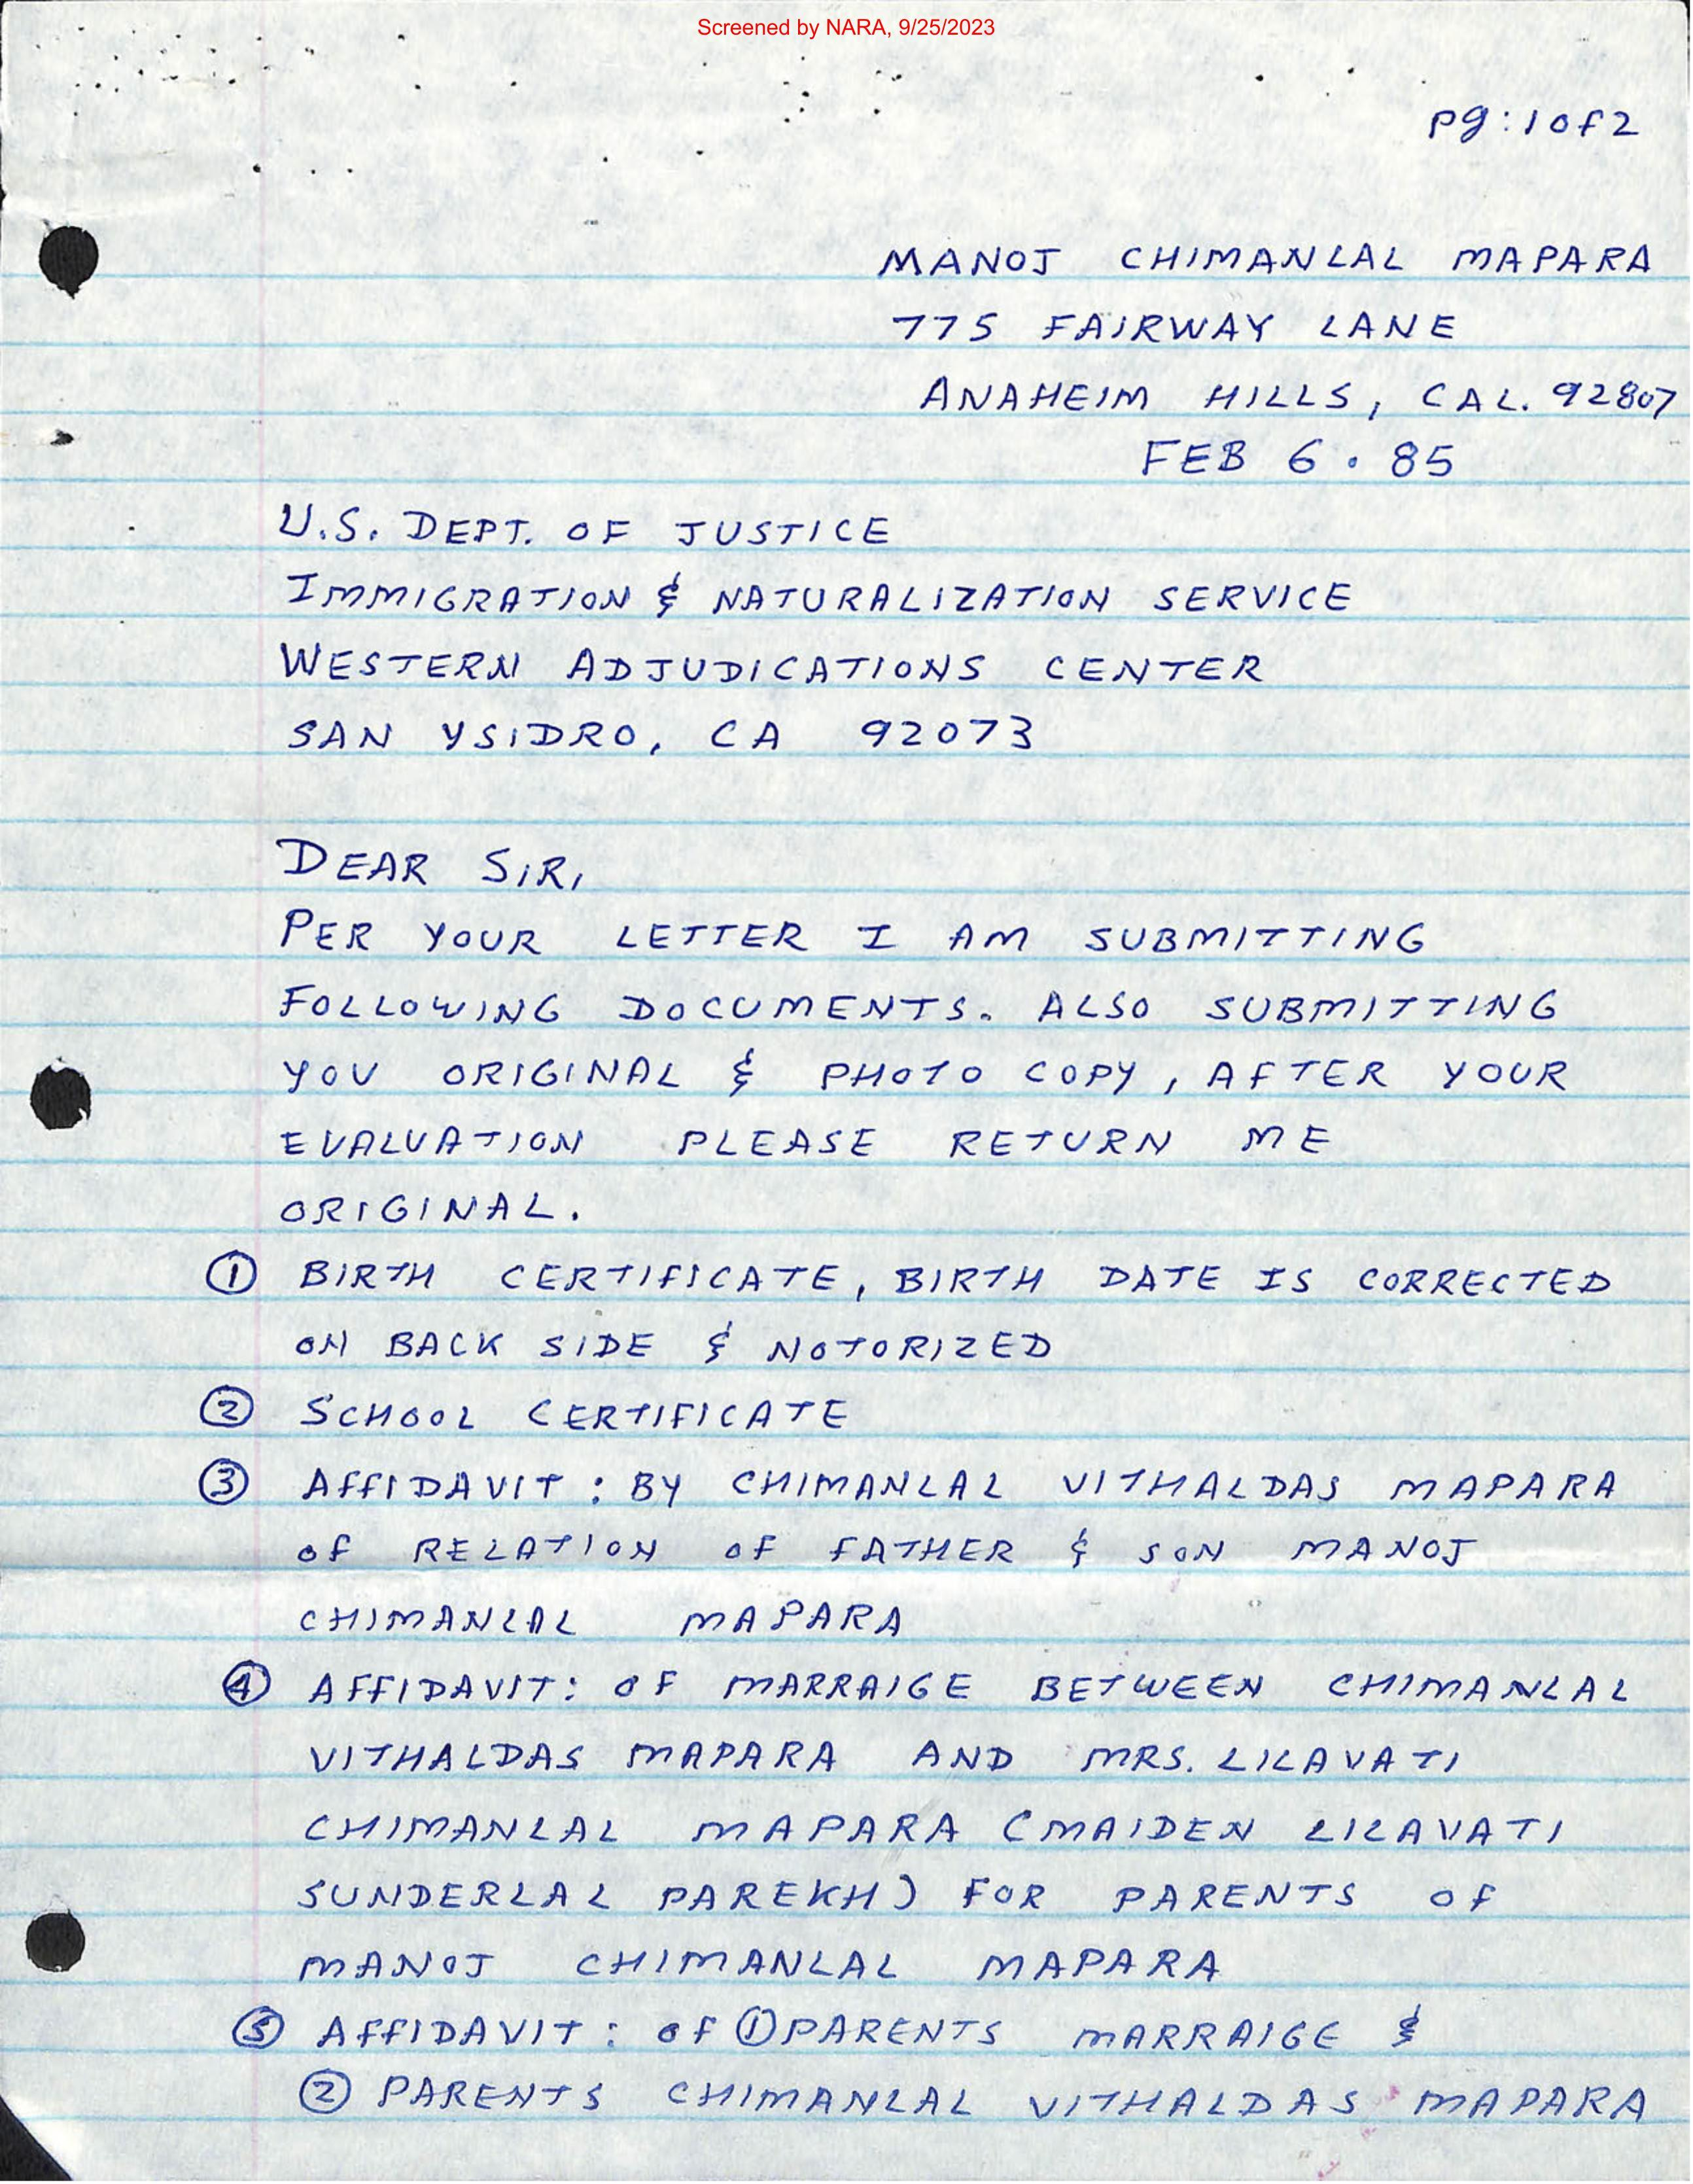 Screened by NARA, 9/25/2023
Pg: 1 of 2
MANOJ CHIMANLAL MAPARA
775 FAIRWAY LANE
ANAHEIM HILLS, CAL. 92807
FEB 6 . 85
U.S. DEPT. OF JUSTICE
IMMIGRATION & NATURALIZATION SERVICE
WESTERN ADJUDICATIONS CENTER
SAN YSIDRO, CA 92073
DEAR SIR,
PER YOUR LETTER I AM SUBMITTING
FOLLOWING DOCUMENTS. ALSO SUBMITTING
YOU ORIGINAL & PHOTO COPY, AFTER YOUR
EVALUATION PLEASE RETURN ME
ORIGINAL.
① BIRTH CERTIFICATE, BIRTH DATE IS CORRECTED
ON BACK SIDE & NOTORIZED
② SCHOOL CERTIFICATE
③ AFFIDAVIT : BY CHIMANLAL VITHALDAS MAPARA
OF RELATION OF FATHER & SON MANOJ
CHIMANLAL MAPARA
④ AFFIDAVIT: OF MARRAIGE BETWEEN CHIMANLAL
VITHALDAS MAPARA AND MRS. LILAVATI
CHIMANLAL MAPARA (MAIDEN LILAVATI
SUNDERLAL PAREKH) FOR PARENTS OF
MANOJ CHIMANLAL MAPARA
⑤ AFFIDAVIT : OF ① PARENTS MARRAIGE &
② PARENTS CHIMANLAL VITHALDAS MAPARA